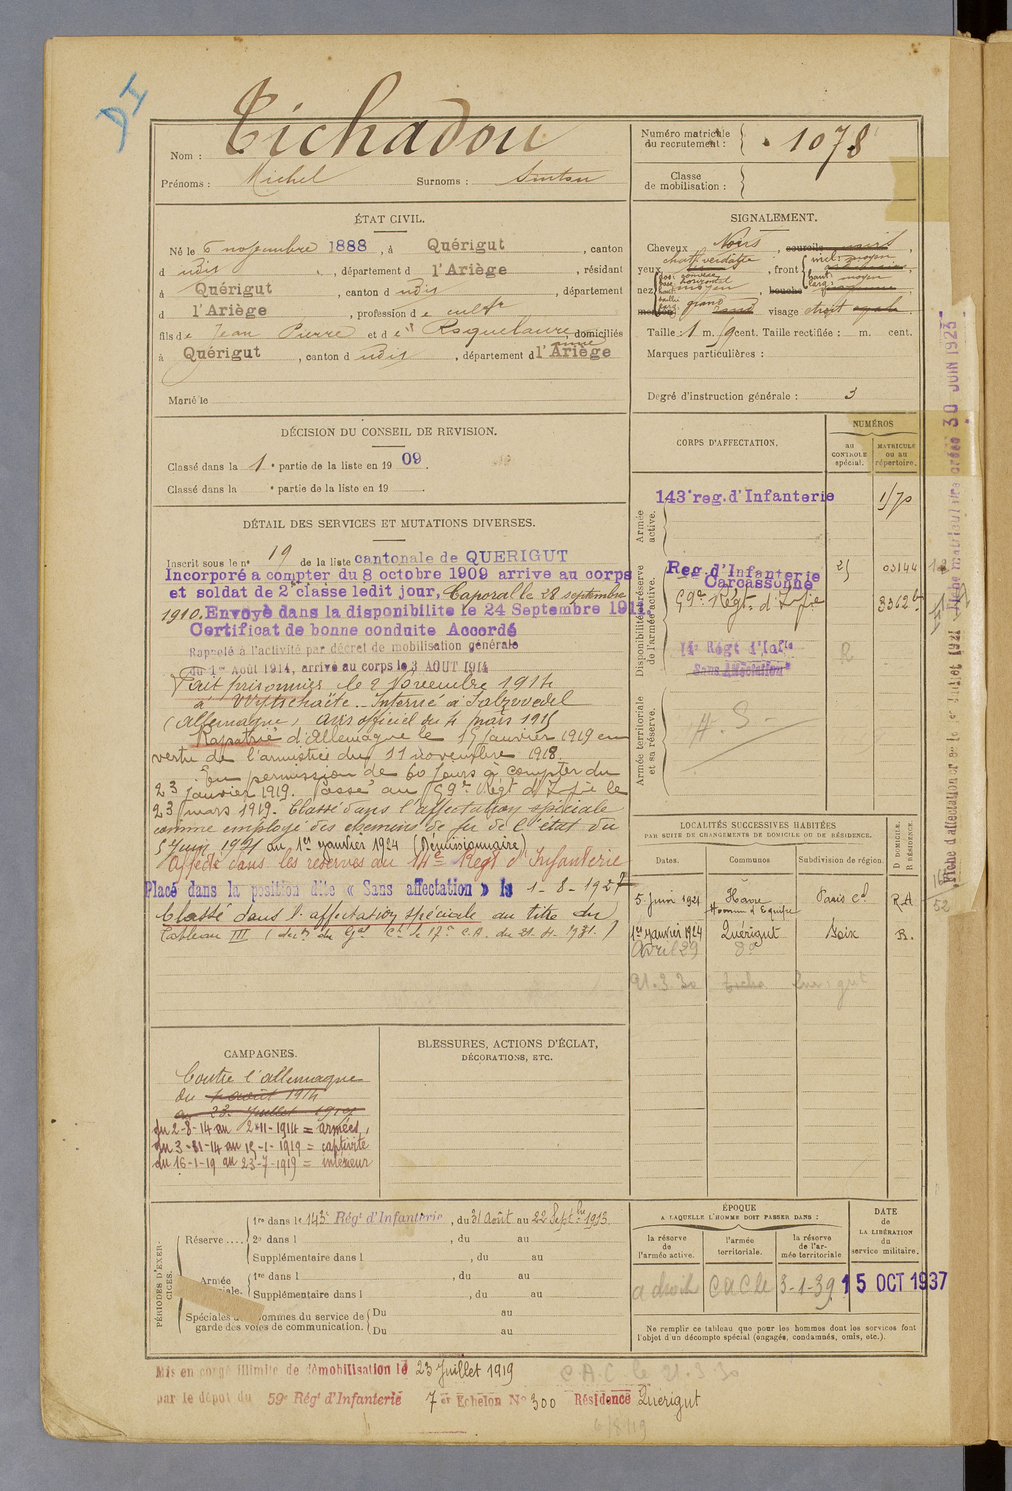 Nom : Tichadou
Prénoms : Michel Surnoms :
Numéro matricule du recrutement : 1078
Classe de mobilisation :
ÉTAT CIVIL.
Né le 6 novembre 1888, à Quérigut, canton
d udis, département d l'Ariège, résidant
à Quérigut, canton d udis, département
d l'Ariège, profession de cultr
fils de Jean Pierre et de Roquelaure, domiciliés
Anne
à Quérigut, canton d udis, département d l'Ariège
Marié le
SIGNALEMENT.
Cheveux Noirs, sourcils noirs,
yeux chat. verdâtre, front incl: moyen
haut: moyen
nez dos:
base: horizontal
haut: moyen, bouche
menton grand visage étroit ovale
Taille: 1 m. cent. Taille rectifiée : m. cent.
Marques particulières :
Degré d'instruction générale : 3
DÉCISION DU CONSEIL DE REVISION.
Classé dans la 1e partie de la liste en 1909.
Classé dans la e partie de la liste en 19 .
DÉTAIL DES SERVICES ET MUTATIONS DIVERSES.
Inscrit sous le n° 19 de la liste cantonale de QUERIGUT
Incorporé a compter du 8 octobre 1909 arrive au corps
et soldat de 2e classe ledit jour, Caporal le 28 septembre
1910. Envoyé dans la disponibilite le 24 Septembre 1911.
Certificat de bonne conduite Accordé
Rappelé à l'activité par décret de mobilisation générale
du 1er Août 1914, arrivé au corps le 3 AOUT 1914
Fait prisonnier le 2 Novembre 1914
à Wytschaëte. Interné à Salzwedel
(Allemagne) avis officiel du 4 mars 1915
Rapatrié d'Allemagne le 15 Janvier 1919 en
vertu de l'armistice du 11 novembre 1918.
En permission de 60 jours à compter du
23 Janvier 1919. Passé au 59e Régt d'Inf-ie le
23 mars 1919. Classé dans l'affectation spéciale
comme employé des chemins de fer de l'état du
5 Juin 1921 au 1er janvier 1924 (Démissionnaire)
Affecté dans les réserves au 14e Régt d'Infanterie
Placé dans la position dite « Sans affectation » le 1-8-1927
Classé dans l'affectation spéciale au titre du
Tableau III (du du Gal Ct le 17e C.A. du 21.4.1931.)
CORPS D'AFFECTATION.
NUMÉROS
au CONTROLE spécial.
MATRICULE ou au répertoire.
Armée active.
143e reg. d'Infanterie
Disponibilité et réserve de l'armée active.
Reg. d'Infanterie 25 03144
Carcassonne
59e Régt. d'Inf-ie 3362
14e Régt d'Infie R
Sans Affectation
Armée territoriale et sa réserve.
A. S. -
LOCALITÉS SUCCESSIVES HABITÉES
PAR SUITE DE CHANGEMENTS DE DOMICILE OU DE RÉSIDENCE.
Dates. Communes Subdivision de région. D DOMICILE. R RÉSIDENCE.
5 Juin 1921 Havre Paris R.A
Homme d'Equipe
1er janvier 1924 Quérigut Foix R.
Avril 29 do
21.3.30
CAMPAGNES.
Contre l'Allemagne
du 4 août 1914
au 23 Juillet 1919
du 2-8-14 au 2-11-1914 = armées,
du 3-11-14 au 15-1-1919 = captivité
du 16-1-19 au 23-7-1919 = intérieur
BLESSURES, ACTIONS D'ÉCLAT,
DÉCORATIONS, ETC.
PÉRIODES D'EXERCICES.
Réserve ....
1re dans le 143e Régt d'Infanterie, du 31 Août au 22 Septbre 1913.
2e dans l , du au
Supplémentaire dans l , du au
Armée
1re dans l , du au
Supplémentaire dans l , du au
Spéciales aux hommes du service de Du au
garde des voies de communication. Du au
ÉPOQUE
A LAQUELLE L'HOMME DOIT PASSER DANS :
la réserve de l'armée active.
l'armée territoriale.
la réserve de l'armée territoriale
DATE de LA LIBÉRATION du service militaire.
3-1-39 15 OCT 1937
Ne remplir ce tableau que pour les hommes dont les services font
l'objet d'un décompte spécial (engagés, condamnés, omis, etc.).
Mis en congé illimité de démobilisation le 23 Juillet 1919
par le dépôt du 59e Régt d'Infanterie 7e Echelon No 300 Résidence Quérigut
C.A.C le 21-3-30
30 JUIN 1923